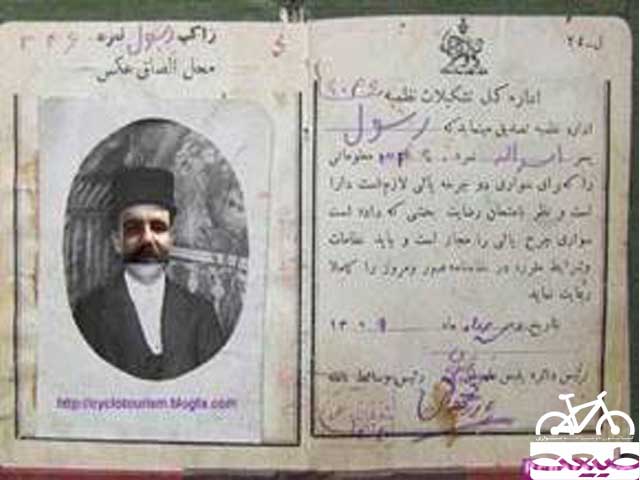 راکب رسول نمره
محل الصاق عکس
http://cyclotourism.blogfa.com
ل-۲۴
اداره کل تشکیلات نظمیه
اداره نظمیه تصدیق مینماید که رسول
پسر نمره معلوماتی
را که برای سواری دو چرخه پائی لازم است دارا
است و نظر بامتحان رضایت بخشی که داده است
سواری چرخ پائی را مجاز است و باید نظامات
وشرایط مقرره در نظامنامه عبور ومرور را کاملا
رعایت نماید
بتاریخ ماه ۱۳۰۹
رئیس دائره پلیس رئیس وسائط نقلیه
طبیعت